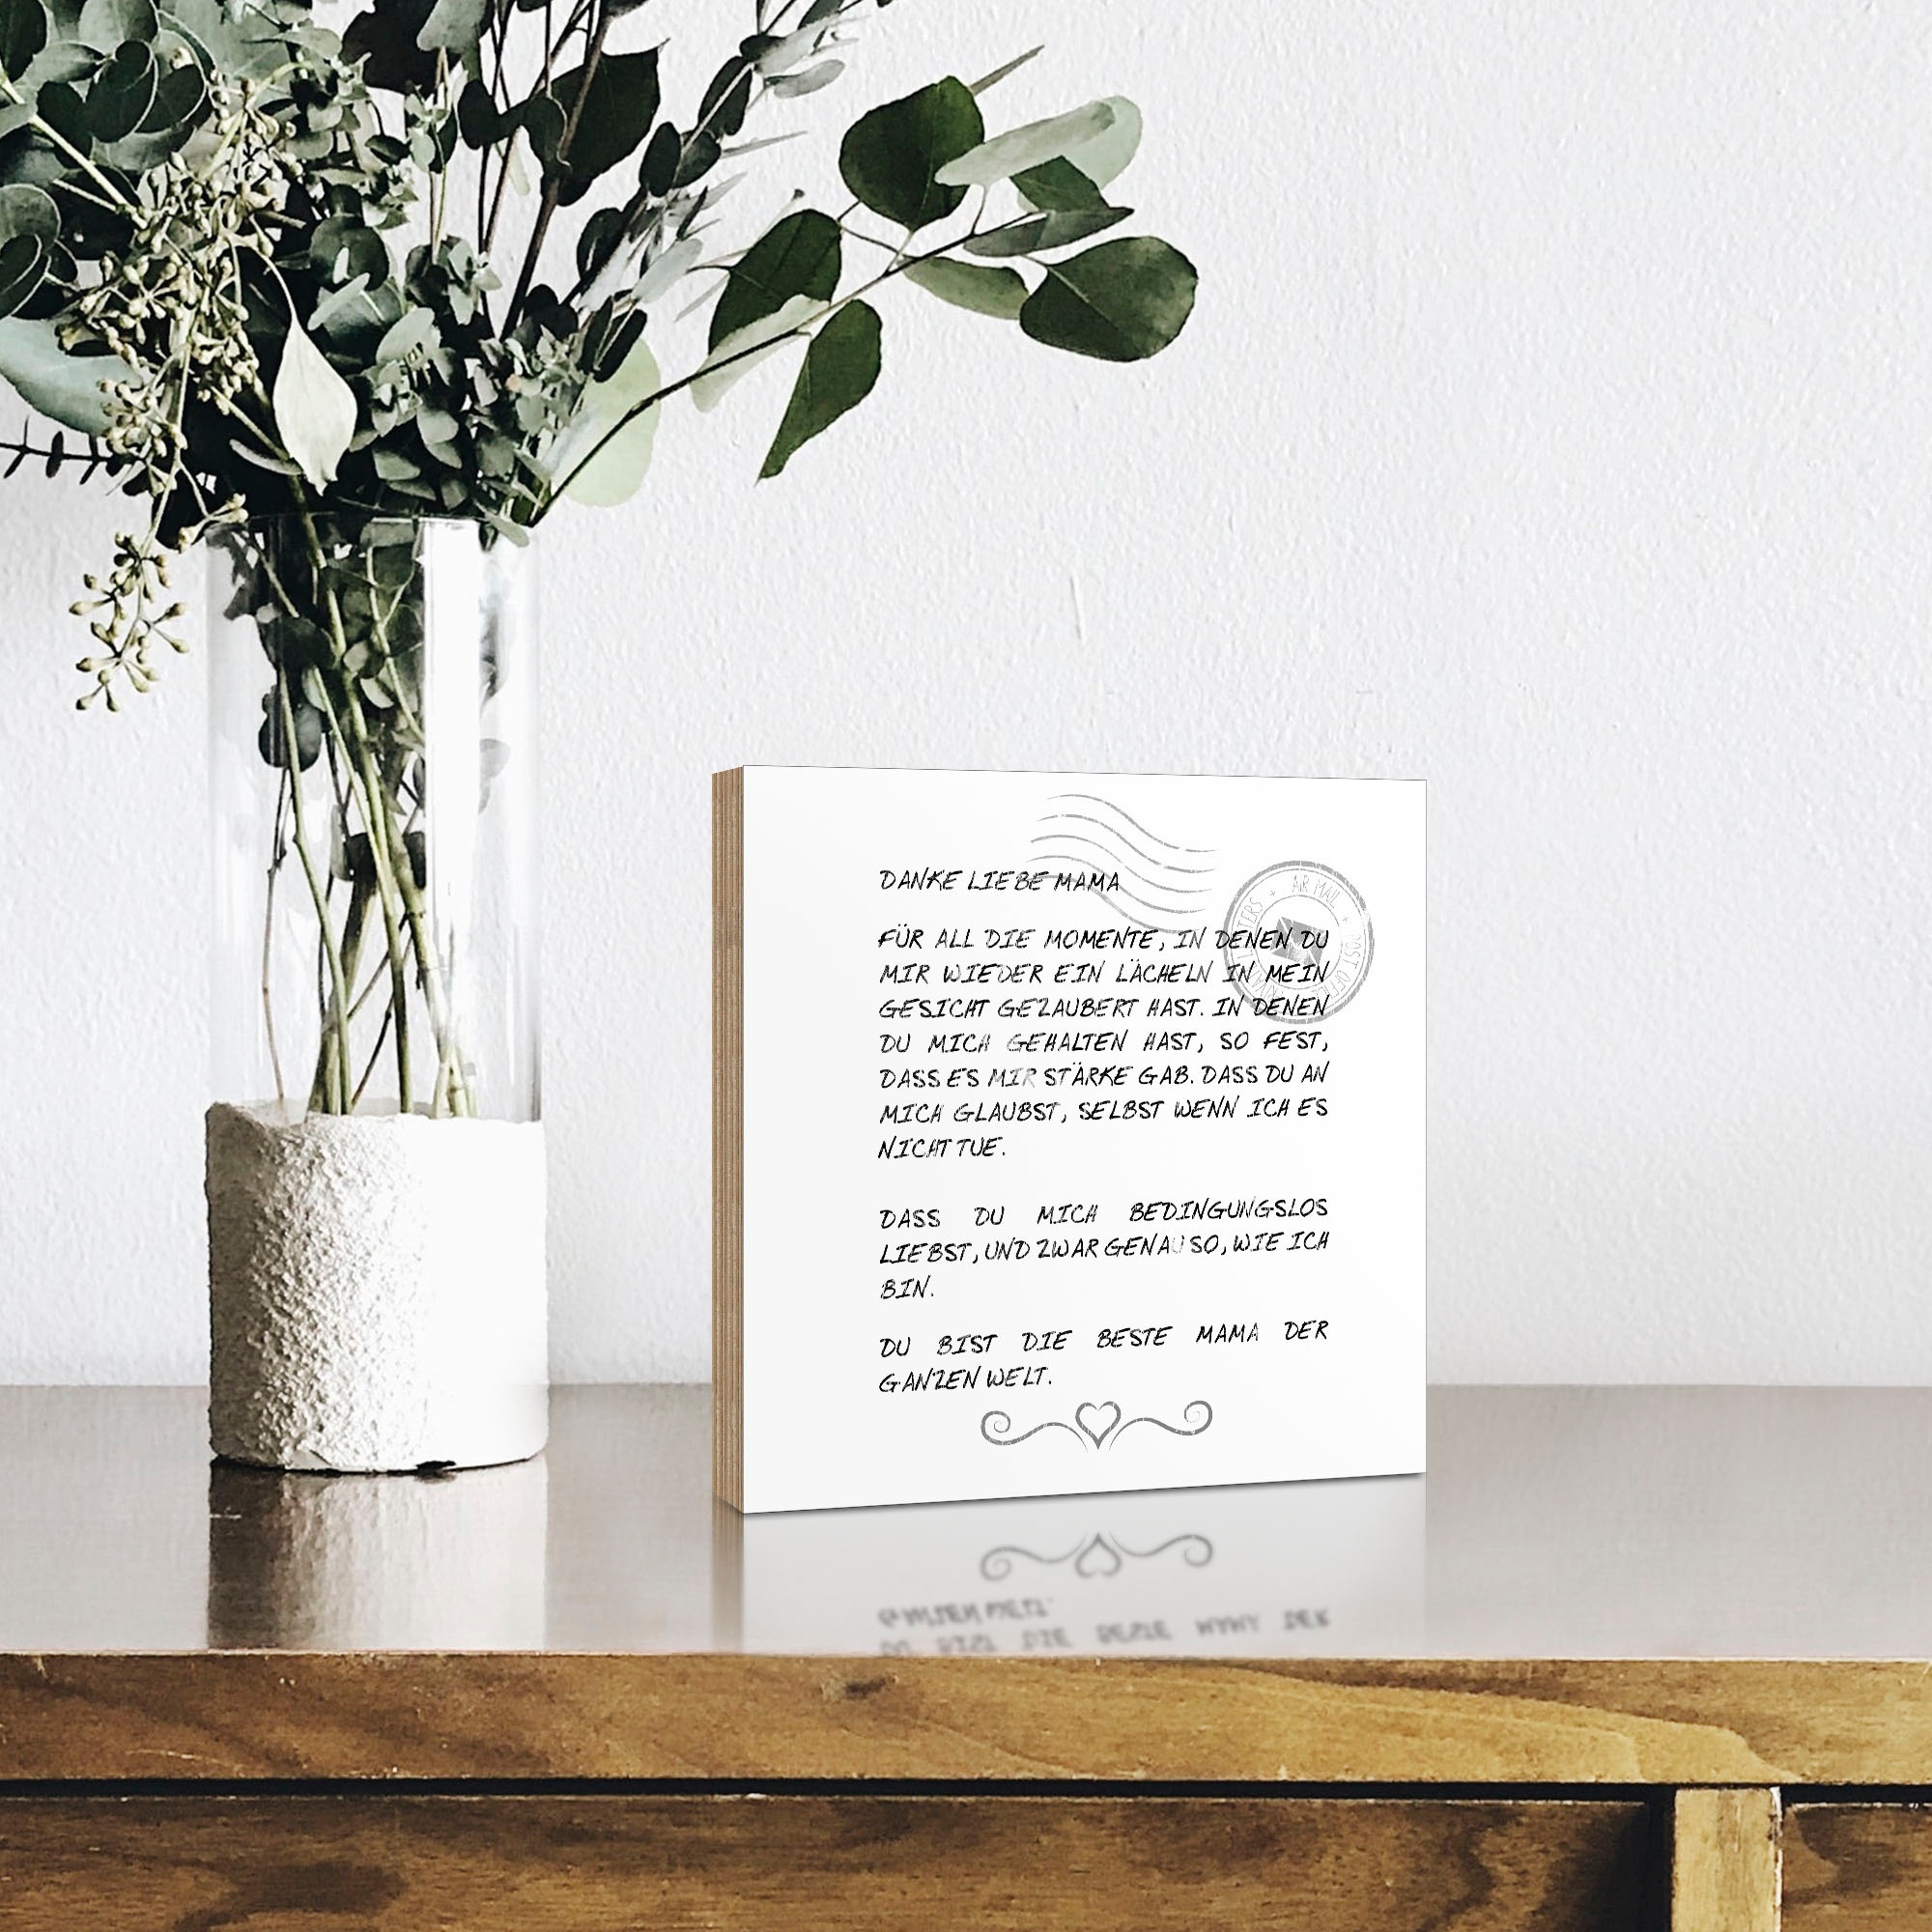 DANKE LIEBE MAMA
FÜR ALL DIE MOMENTE, IN DENEN DU
MIR WIEDER EIN LÄCHELN IN MEIN
GESICHT GEZAUBERT HAST. IN DENEN
DU MICH GEHALTEN HAST, SO FEST,
DASS ES MIR STÄRKE GAB. DASS DU AN
MICH GLAUBST, SELBST WENN ICH ES
NICHT TUE.
DASS DU MICH BEDINGUNGSLOS
LIEBST, UND ZWAR GENAU SO, WIE ICH
BIN.
DU BIST DIE BESTE MAMA DER
GANZEN WELT.
AIR MAIL